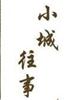 小城
往事